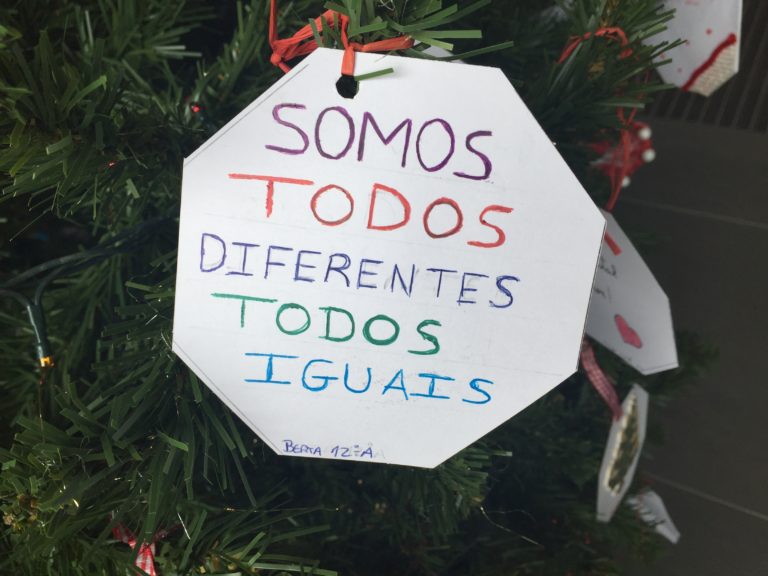 SOMOS
TODOS
DIFERENTES
TODOS
IGUAIS
BERTA 12ºA